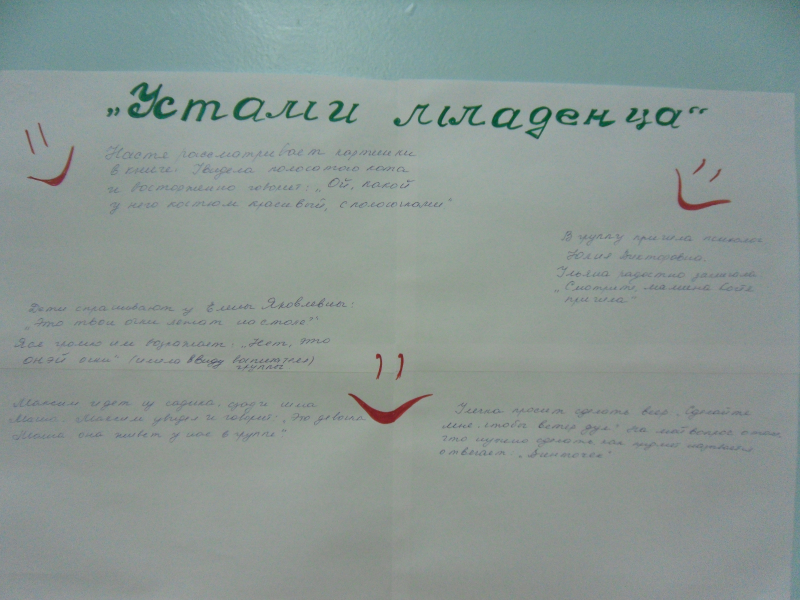 „Устами младенца“
Настя рассматривает картинки
в книге. Увидела полосатого кота
и восторженно говорит: „Ой, какой
у него костюм красивый, с полосочками“
В группу пришла психолог
Юлия Викторовна.
Ульяна радостно
„Смотрите, мамина Катя
пришла“
Дети спрашивают у Елены Яковлевны:
„Это твои очки лежат на столе?“
Яся громко им возражает: „Нет, это
очки“ (имела ввиду воспитателя)
группы
Максим идет из садика, сзади шла
Маша. Максим увидел и говорит: „Это девочка
Маша, она живет у нас в группе“
просит сделать веер. „Сделайте
мне, чтобы ветер дул“ На мой вопрос о том,
что нужно сделать как
отвечает: „Вееночек“